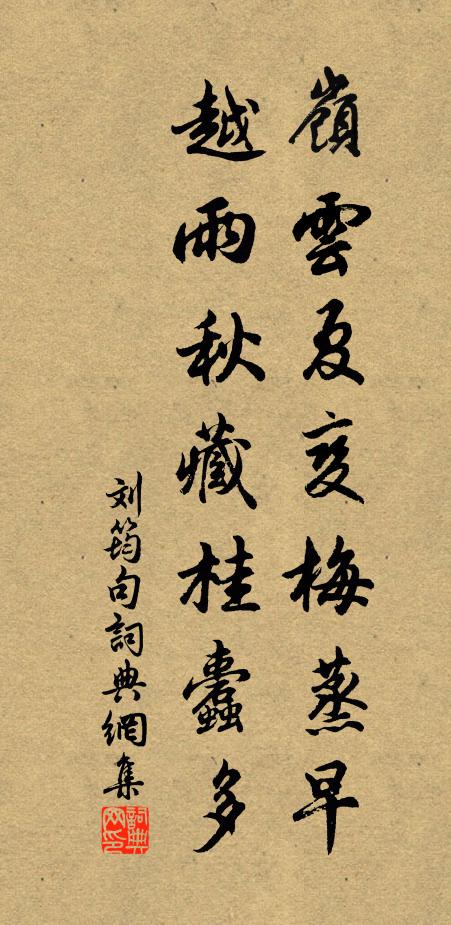 嶺雲夏变梅蒸早
越雨秋藏桂蠹多
刘筠句詞典網集
詞典网印